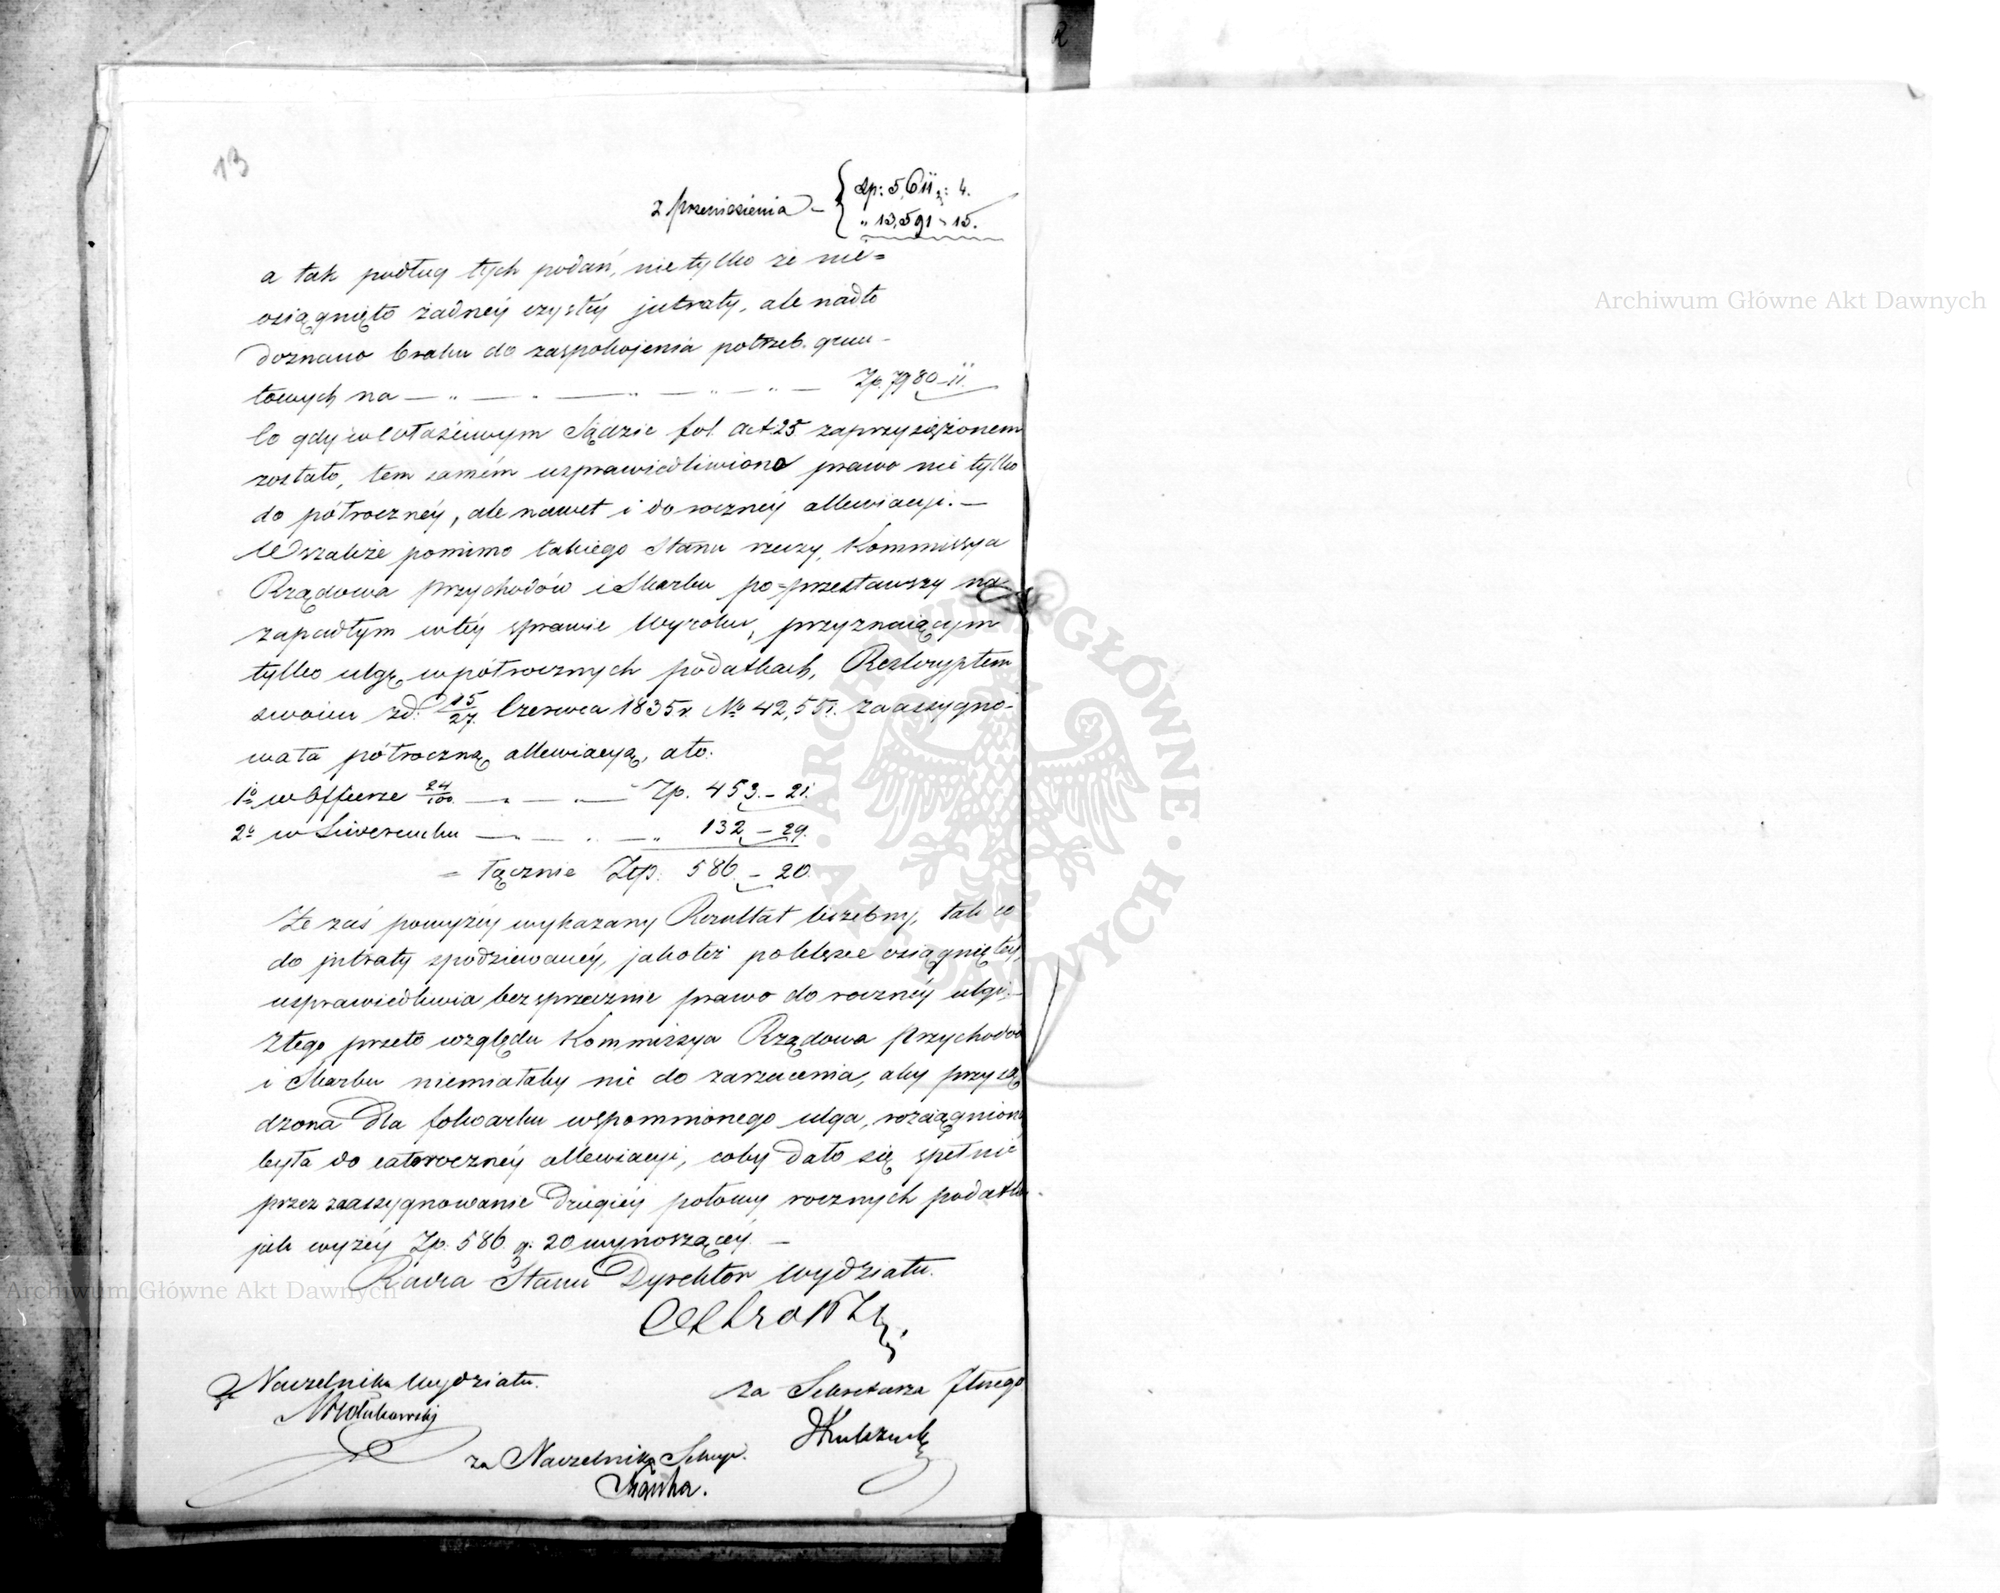 13
z przeniesienia — { Zp: 5,611 g: 4.
" 13,591 - 15.
a tak podług tych podań, nie tylko że nie=
osiągnięto żadnéy czystéy intraty, ale nadto
doznano braku do zaspokojenia potrzeb grun-
towych na — " — " — " — " — Zp. 7980 - 11.
Co gdy w właściwym Sądzie fol. Act 25 zaprzysiężonem
zostało, tem samém usprawiedliwiono prawo nie tylko
do półrocznéy, ale nawet i do rocznéy allewiacyi. —
Wszakże pomimo takiego Stanu rzeczy, Kommissya
Rządowa Przychodów i Skarbu po=przestawszy na
zapadłym w téy sprawie Wyroku, przyznaiącym
tylko ulgę w półrocznych podatkach, Reskryptem
swoim z d. 15/27. Czerwca 1835 r. No 42,551. zaassygno-
wała półroczną allewiacyą, a to:
1o w Offierze 24/100. — " — " — Zp. 453. - 21.
2o w Liwerunku — " — " — " 132 - 29.
= łącznie Złp. 586. - 20.
Że zaś powyżéy wykazany Rezultat liczebny, tak co
do intraty spodziewanéy, jakoteż po klęsce osiągniętéy,
usprawiedliwia bezsprzecznie prawo do rocznéy ulgi. —
Z tego przeto względu Kommissya Rządowa Przychodów
i Skarbu niemiałaby nic do zarzucenia, aby przysą
dzona dla folwarku wspomnionego ulga, rozciągnioną
była do całorocznéy allewiacyi, coby dało się spełnić
przez zaassygnowanie drugiéy połowy rocznych podatków.
jak wyżéy Zp. 586. g: 20 wynoszącéy. —
Radca Stanu Dyrektor Wydziału.
Naczelnik Wydziału.
za Sekretarza Jlnego
za Naczelnika Sekcyi.
Archiwum Główne Akt Dawnych
Archiwum Główne Akt Dawnych
ARCHIWUM GŁÓWNE AKT DAWNYCH